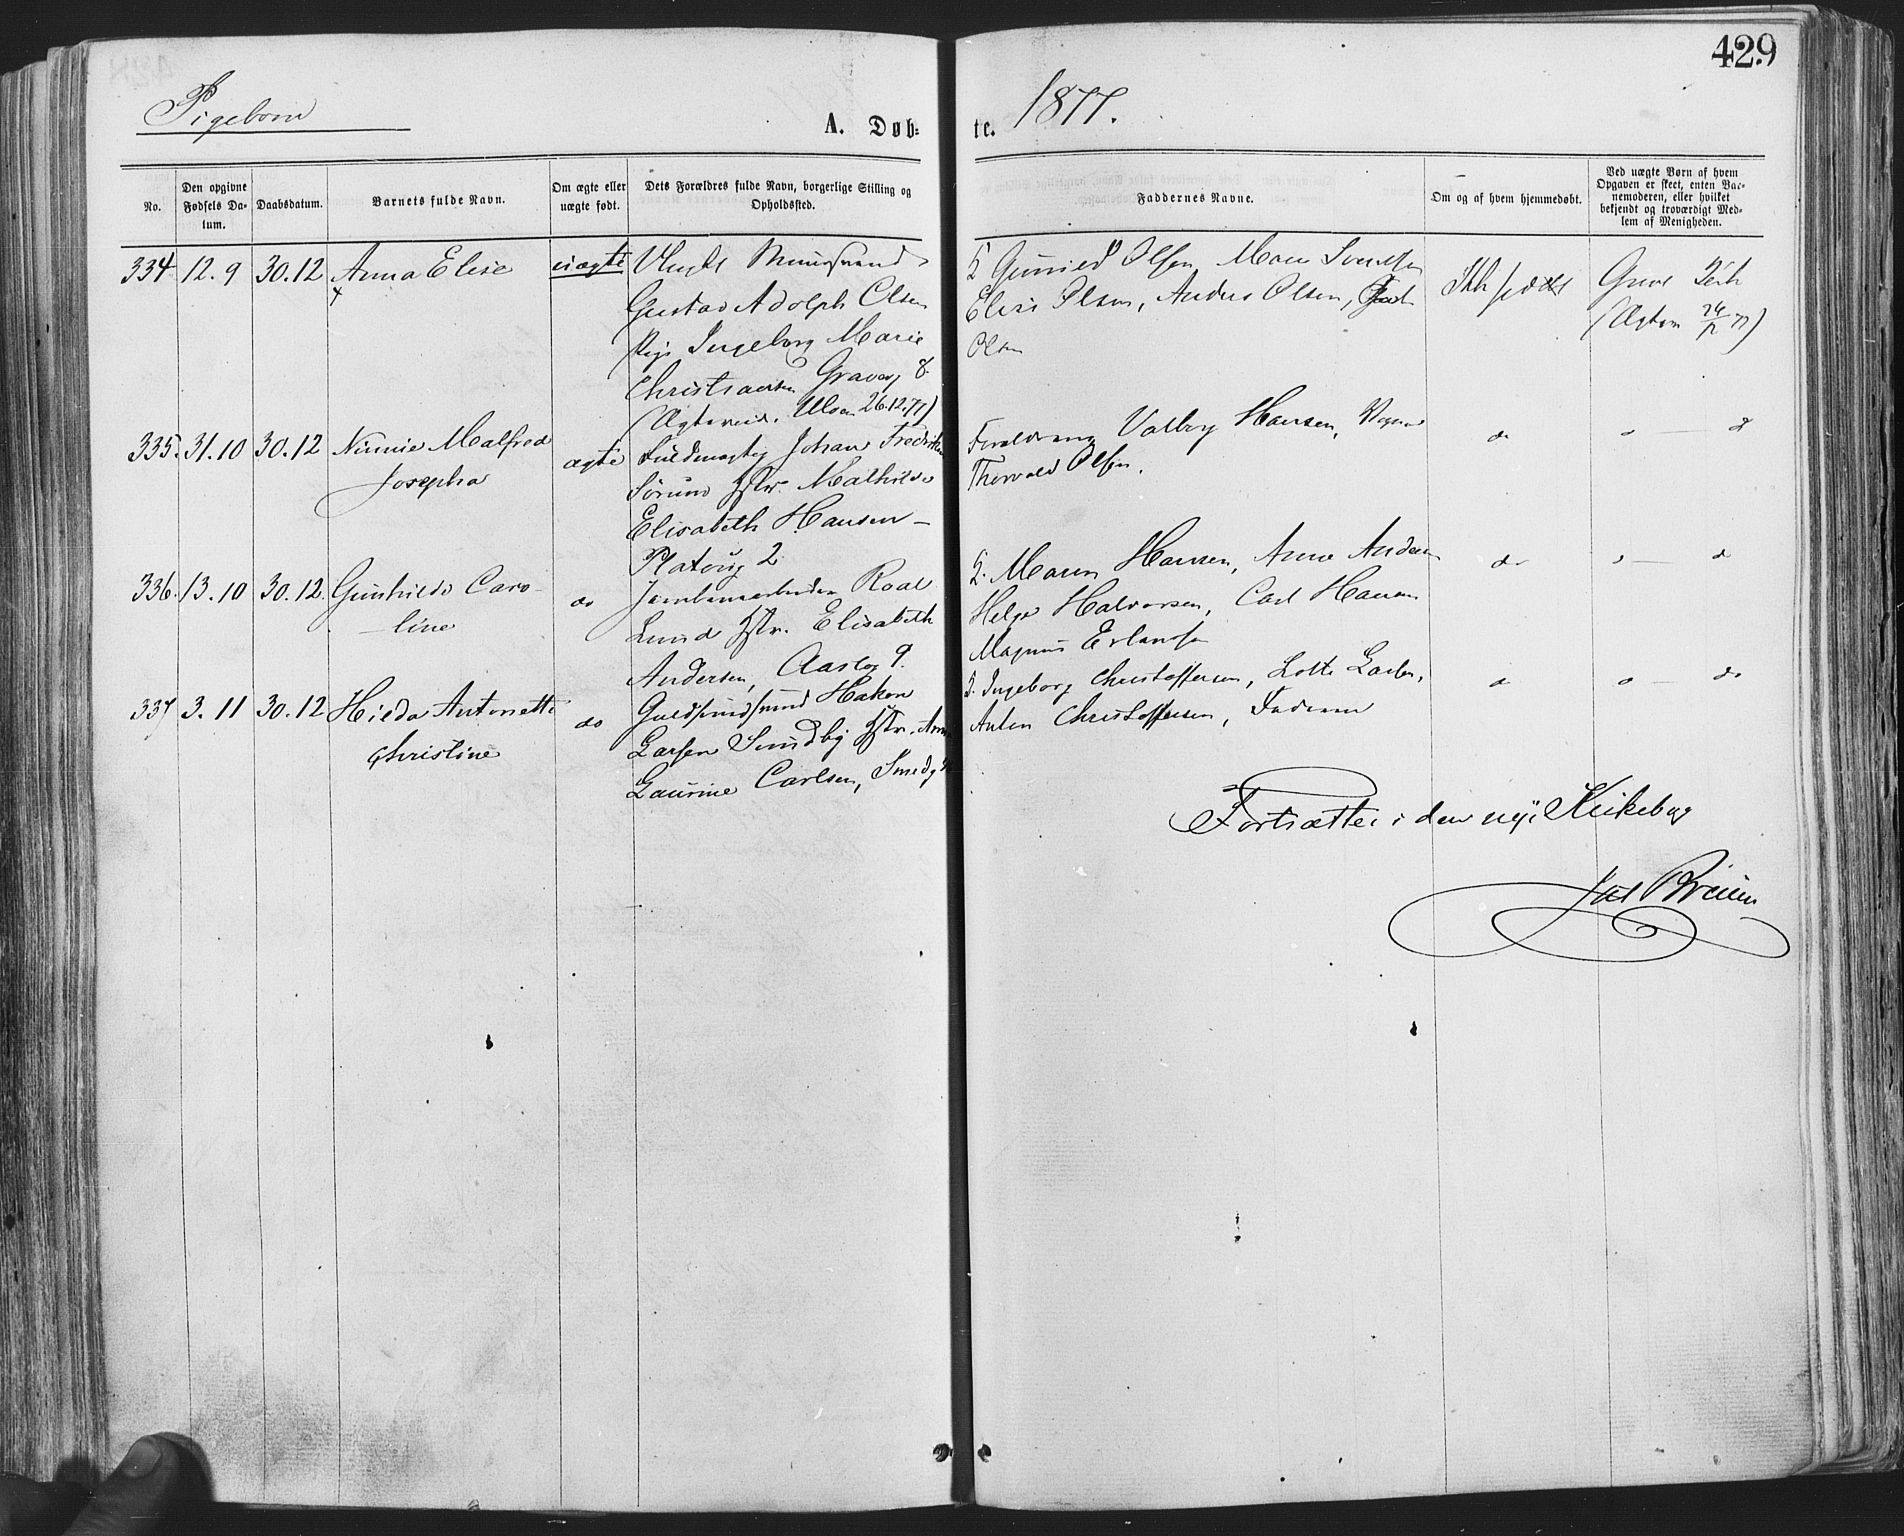 429
Pigebørn
A. Døb= te. 1877.
No.
Den opgivne Fødsels Da-
tum.
Daabsdatum.
Barnets fulde Navn.
Om ægte eller
uægte født.
Dets Forældres fulde Navn, borgerlige Stilling og
Opholdssted.
Faddernes Navne.
Om og af hvem hjemmedøbt.
Ved uægte Børn af hvem
Opgaven er skeet, enten Bar-
nemoderen, eller hvilket
bekjendt og troværdigt Med-
lem af Menigheden.
334 12.9 30.12 Anna Elise uægte
Gustav Adolph Olsen
Pige Ingeborg Marie
Christiansen Gravg 8
26.12.77)
Olsen, Maren Svendsen
Elise Olsen, Anders Olsen,
Olsen
335. 31.10 30.12 Ninnie Malfred
Josepha
ægte Fuldmægtig Johan Fredrik
Sørum Hstr. Mathilde
Elisabeth Hansen –
Platoug 2
Forældrene, Valborg Hansen,
Thorvald Olsen.
do
336. 13.10 30.12. Gunhilde Caro-
line
do Jernbanearbeider Roal
Lund Hstr. Elisabeth
Andersen, 9.
2. Maren Hansen, Anne Andersen
Helge Halvorsen, Carl Hansen
Magnus Erlandsen
do
337 3.11 30.12 Hilda Antonette
Christine
do Guldsmedsvend Hakon
Larsen Sundby Hstr. Anna
Laurine Carlsen, Smedg
2. Ingeborg Christoffersen, Lotte Larsen,
Anton Christoffersen, Faderen
do
Fortsættes i den nye Kirkebog
Breien